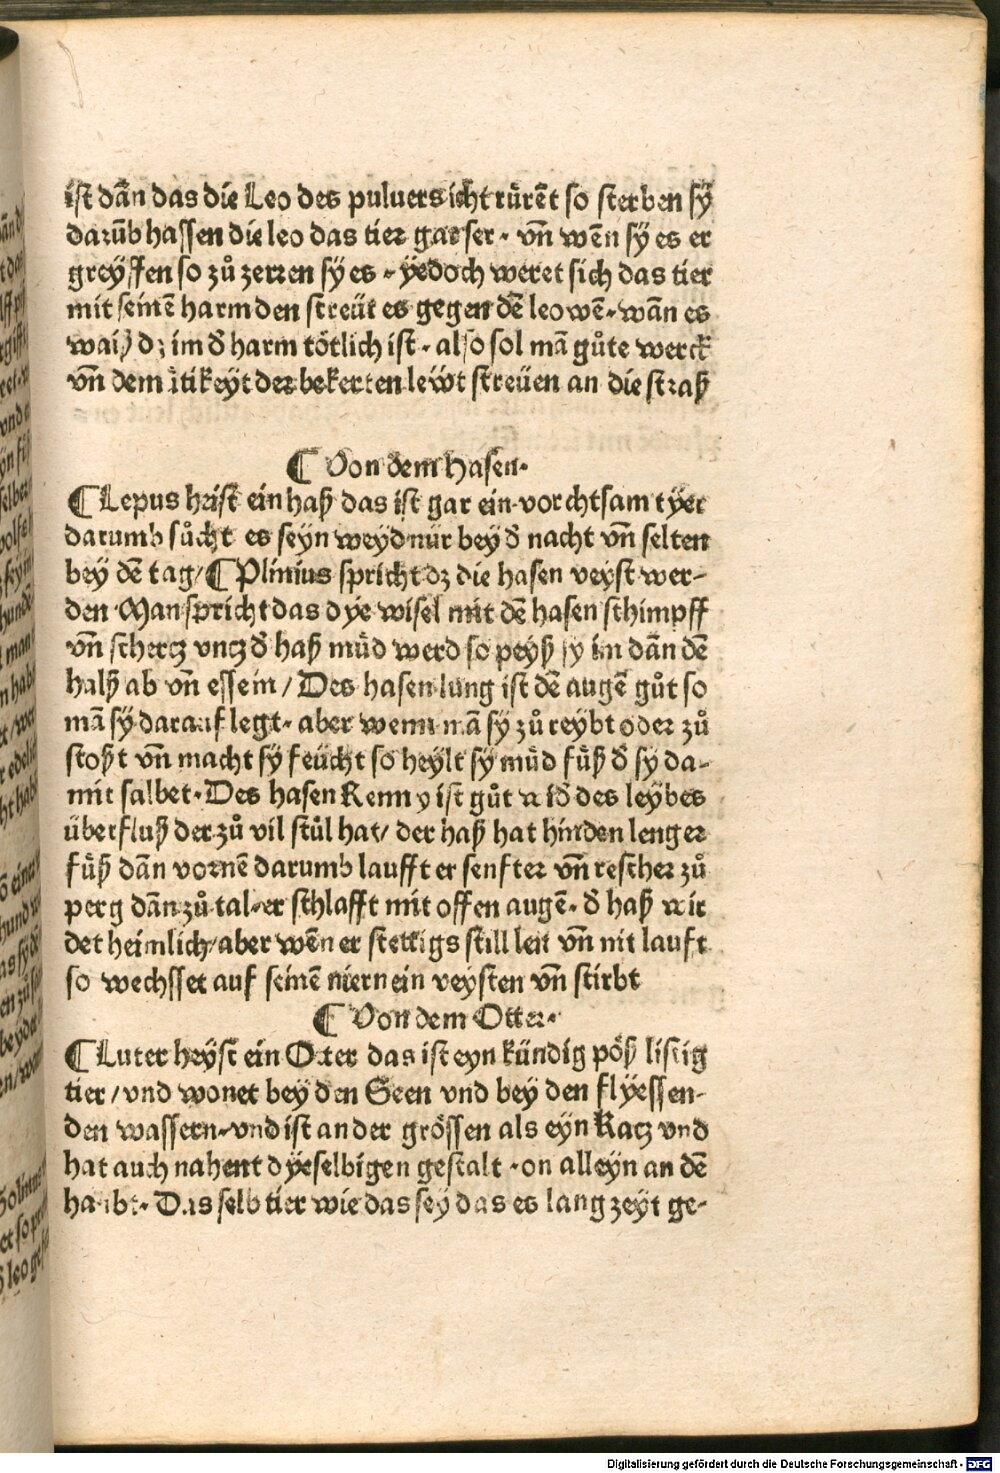 ist dãn das die Leo des puluers icht rürẽt so sterben sÿ
darũb hassen die leo das tier gar ser · vñ wẽn sÿ es er
greÿffen so zů zerren sÿ es · ÿedoch weret sich das tier
mit seinẽ harm den streüt es gegen dẽ leowẽ · wãn es
waiß dz im đ harm tötlich ist · also sol mã gůte werck
vñ demĩtikeyt der bekerten leẅt streüen an die straß
¶ Von dem Hasen ·
¶ Lepus heist ein haß das ist gar ein vorchtsam tÿer
darumb sůcht es seyn weyd nür beÿ đ nacht vñ selten
bey dẽ tag / ¶ Plinius spricht dz die hasen veyst wer-
den Man spricht das dÿe wisel mit dẽ hasen schimpff
vñ schertz vntz đ haß můd werd so peyß sy im dãn dẽ
halß ab vñ essein / Des hasen lung ist dẽ augẽ gůt so
mã sÿ darauf legt · aber wenn mã sÿ zů reybt oder zů
stoßt vñ macht sÿ feücht so heylt sy můd fůß đ sÿ da-
mit salbet · Des hasen Renny ist gůt wiđ des leÿbes
überfluß der zů vil stůl hat / der haß hat hinden lenger
fůß dãn vornẽ darumb laufft er senfter vñ rescher zů
perg dãn zů tal · er schlafft mit offen augẽ · đ haß wir
det heimlich / aber wẽn er stettigs still leit vñ nit lauft
so wechsset auf seinẽ niern ein veysten vñ stirbt
¶ Von dem Otter ·
¶ Luter heyst ein Otter das ist eyn kündig pöß listig
tier / vnd wonet beÿ den Seen vnd beÿ den flÿessen-
den wassern · vnd ist an der grössen als eyn Katz vnd
hat auch nahent dÿeselbigen gestalt · on alleyn an dẽ
haubt · Das selb tier wie das seÿ das es lang zeÿt ge-
Digitalisierung gefördert durch die Deutsche Forschungsgemeinschaft - DFG